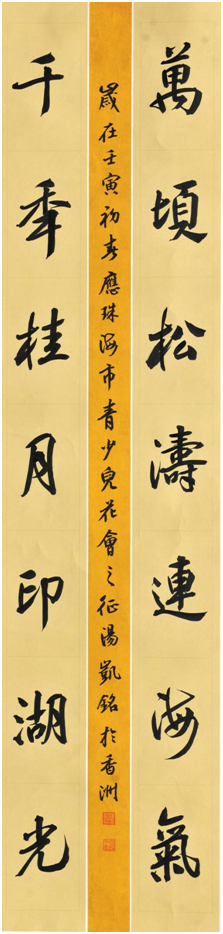 萬頃松濤連海氣
千年桂月印湖光
歲在壬寅初春應珠海市青少兒花會之征湯凱銘於香洲